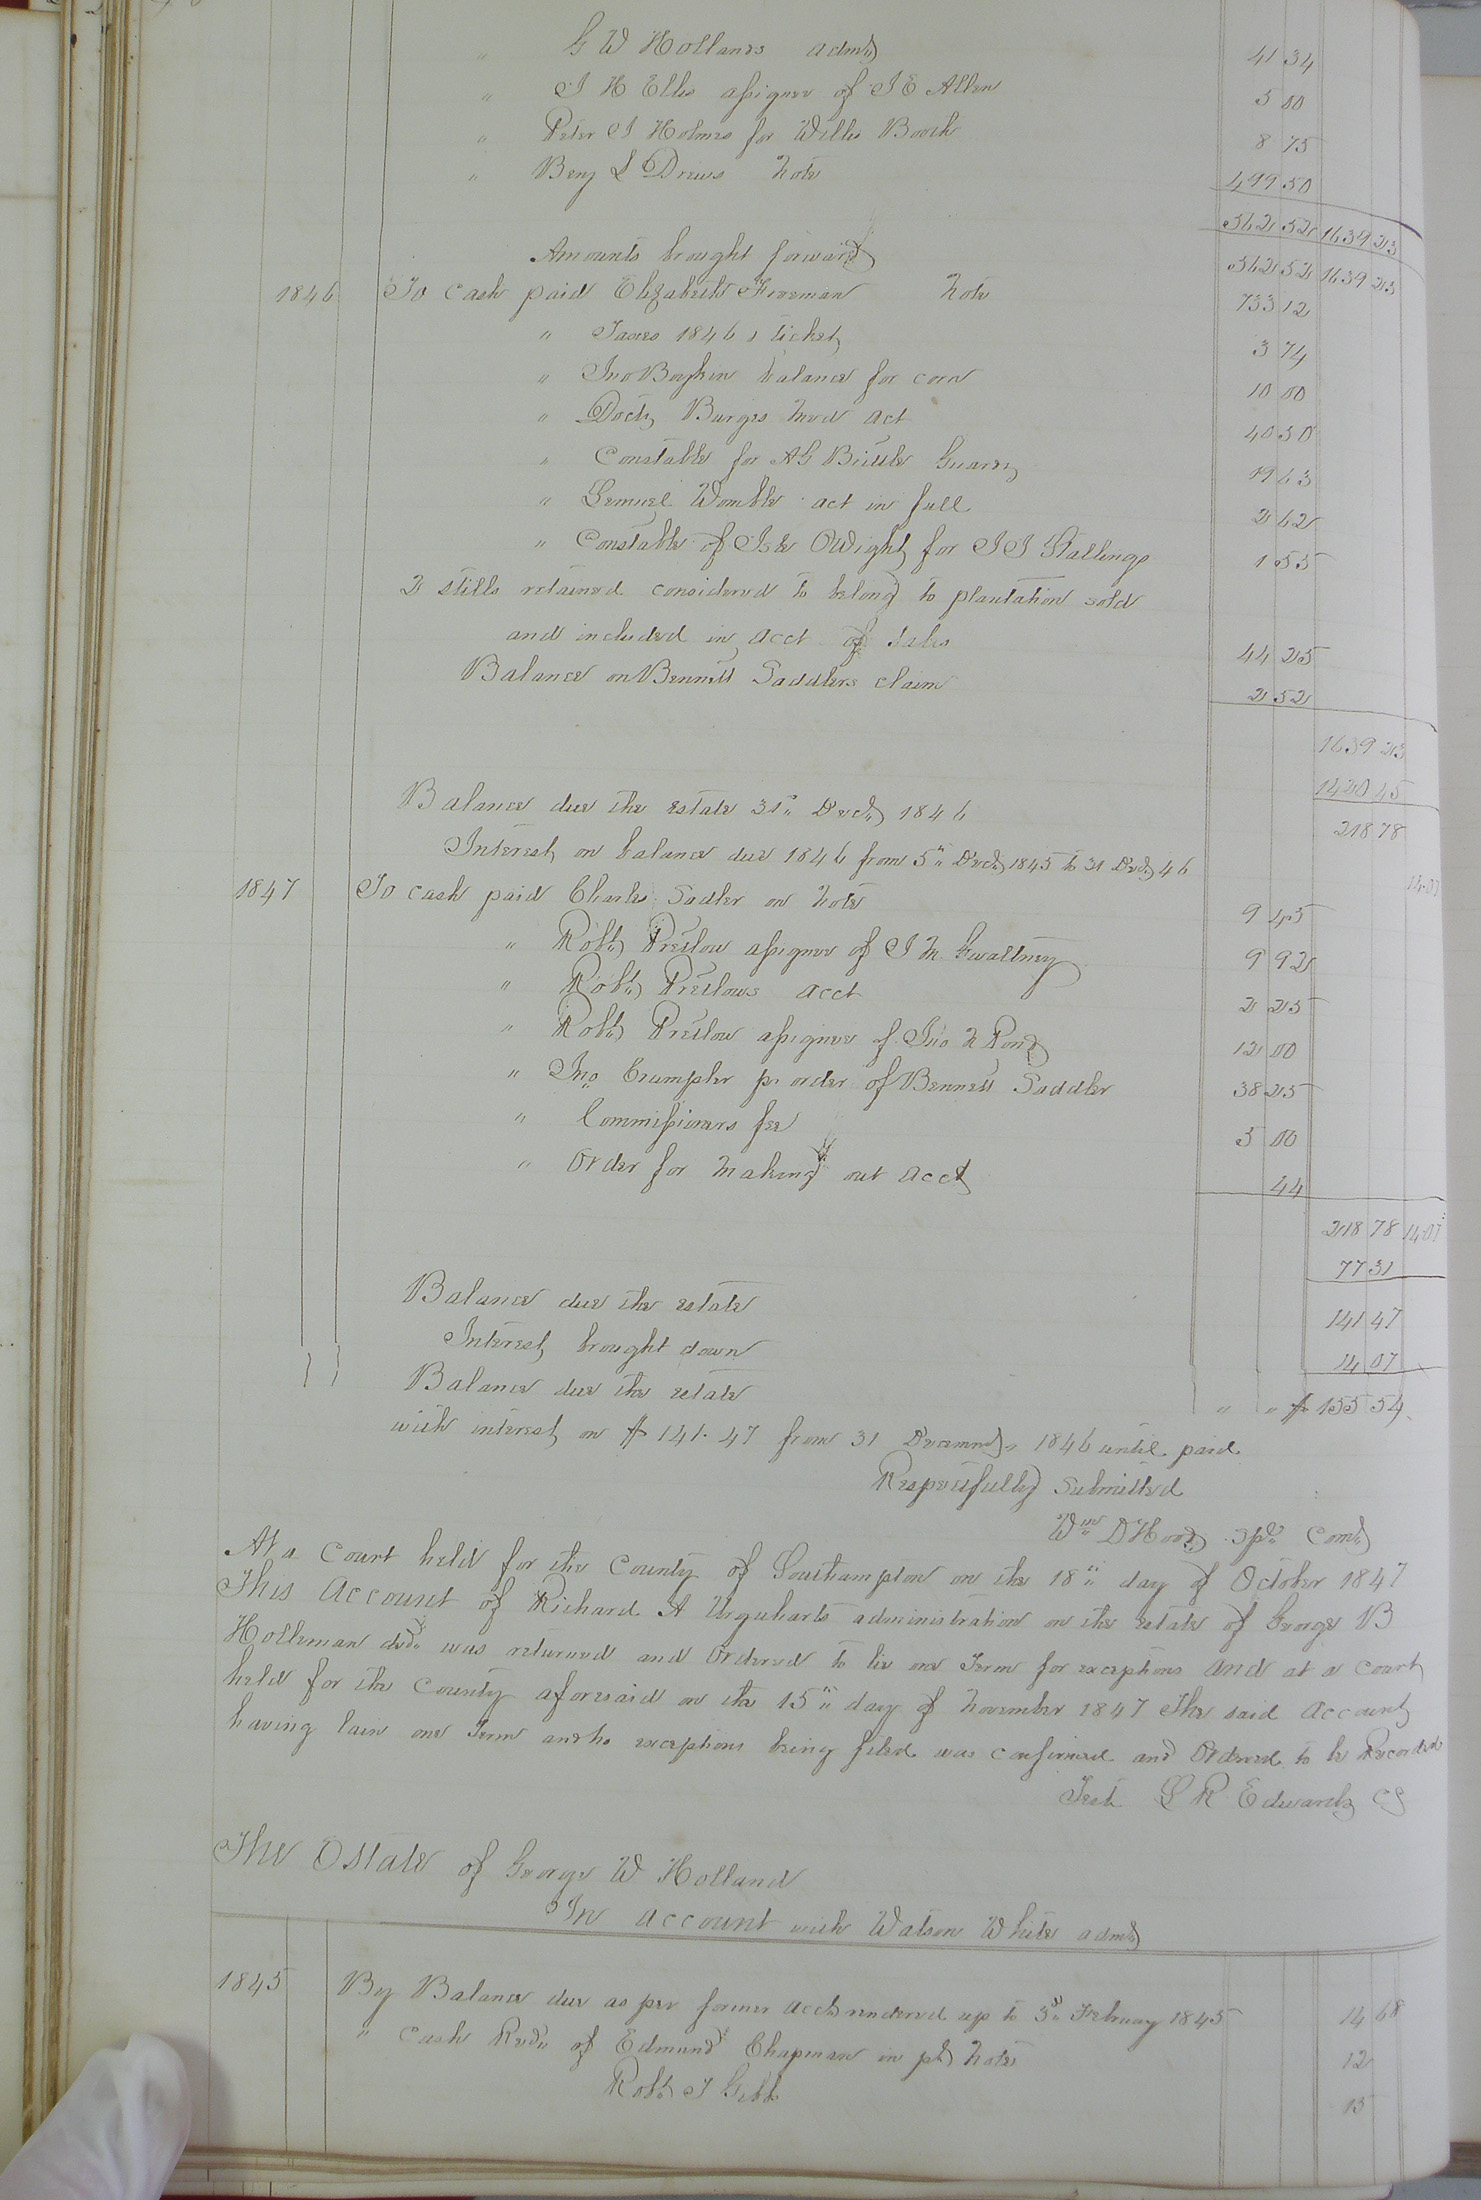 " G W Hollands admr 41 34
" J H Ellis assignee of J E Allen 5 00
" Peter J Holmes for Willis Booth 8 75
" Benj L Drews note 499 50
562 52 1639 23
Amounts brought forward 562 52 1639 23
1846 To cash paid Elizabeth Freeman note 733 12
" Taxes 1846 1 ticket 3 74
" Jno Boykin balance for corn 10 00
" Doctr Burges med act 40 50
" Constable for A G Brittle Guardn 19 63
" Lemuel Womble act in full 2 62
" Constable of Isle OWight for J J Stallings 1 55
2 stills retained considered to belong to plantation sold
and included in acct of sales 44 25
Balance on Bennett Saddlers claim 2 52
1639 23
1420 45
Balance due the estate 31st Decr 1846 218 78
Interest on balance due 1846 from 5th Decr 1845 to 31 Decr 46 14.07
1847 To cash paid Charles Sadler on note 9 45
" Robt Pretlow assignee of J M Gwaltney 9 92
" Robt Pretlows acct 2 25
" Robt Pretlow assignee of Jno R Pond 12 00
" Jno Crumpler pr order of Bennett Saddler 38 25
" Commissioners fee 5 00
" Order for making out acct 44
218 78 14.07
77 31
Balance due the estate 141 47
Interest brought down 14 07
Balance due the estate " " $ 155 54
with interest on $ 141.47 from 31 Decemr 1846 until paid
Respectfully Submitted
Wm D Hood Spl Comr
At a Court held for the County of Southampton on the 18th day of October 1847
This Account of Richard A Urquharts administration on the estate of George B
Holleman decd was returned and ordered to lie one Term for exceptions and at a Court
held for the County aforesaid on the 15th day of November 1847 The said Account
having lain one Term and no exceptions being filed was confirmed and Ordered to be Recorded
Test L R Edwards CS
The Estate of George W Holland
In account with Watson White admr
1845 By Balance due as per former accts rendered up to 3d February 1845 14 68
" Cash Recd of Edmund Chapman in pt note 12
Robt J 15